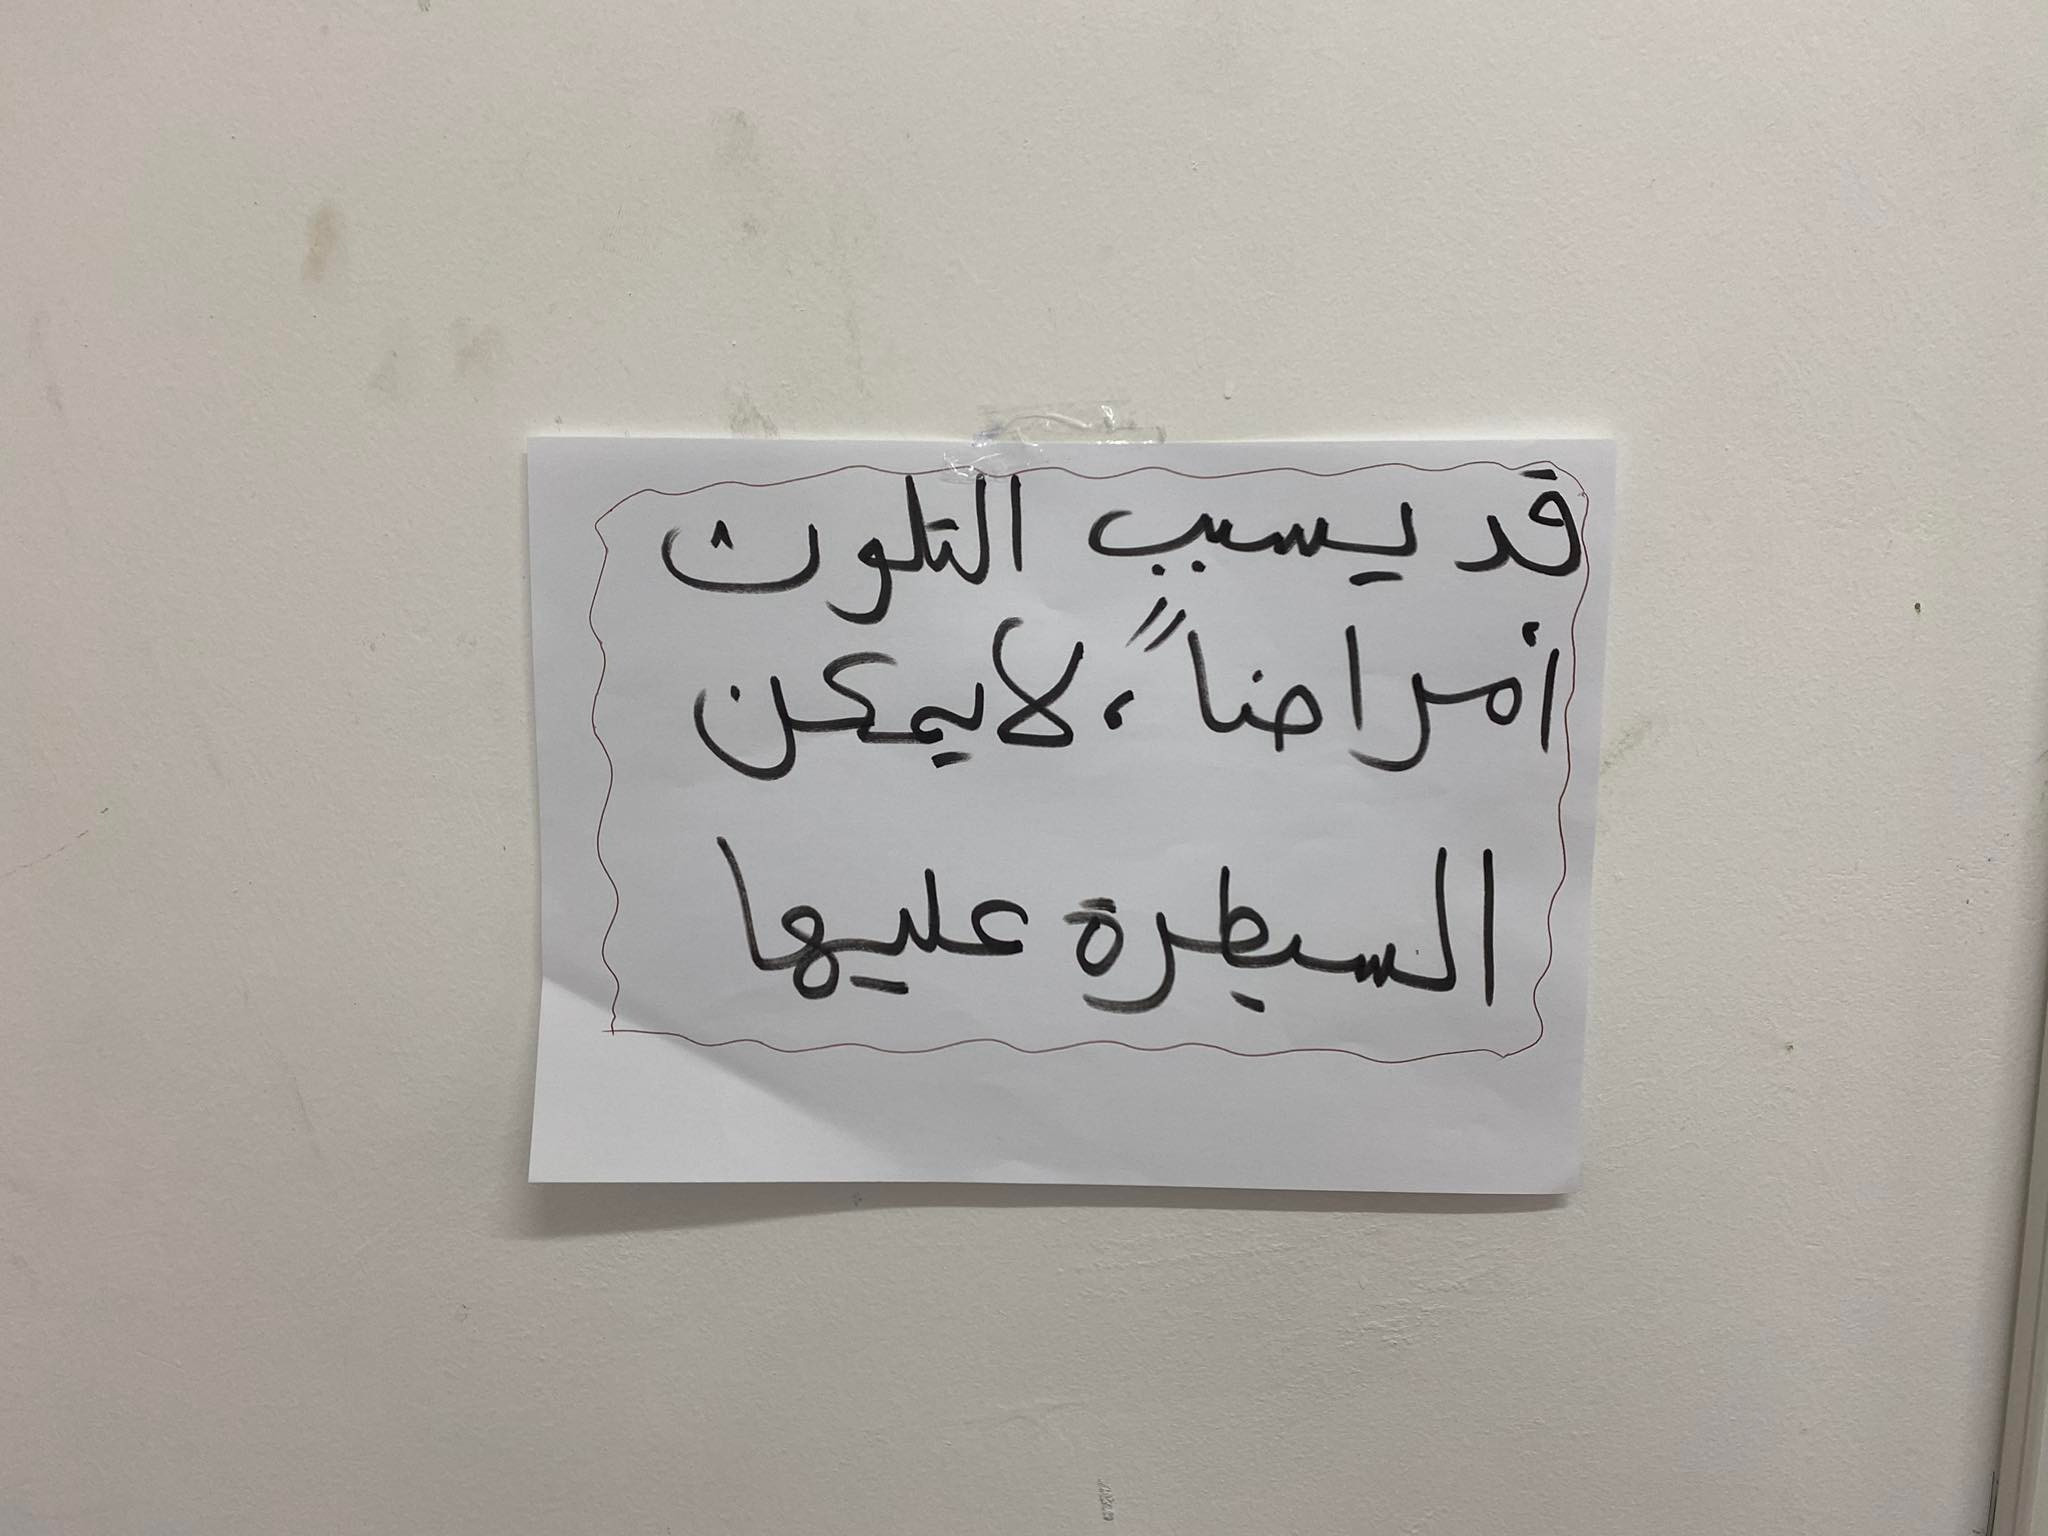 قد يسبب التلوث
أمراضاً، لا يمكن
السيطرة عليها